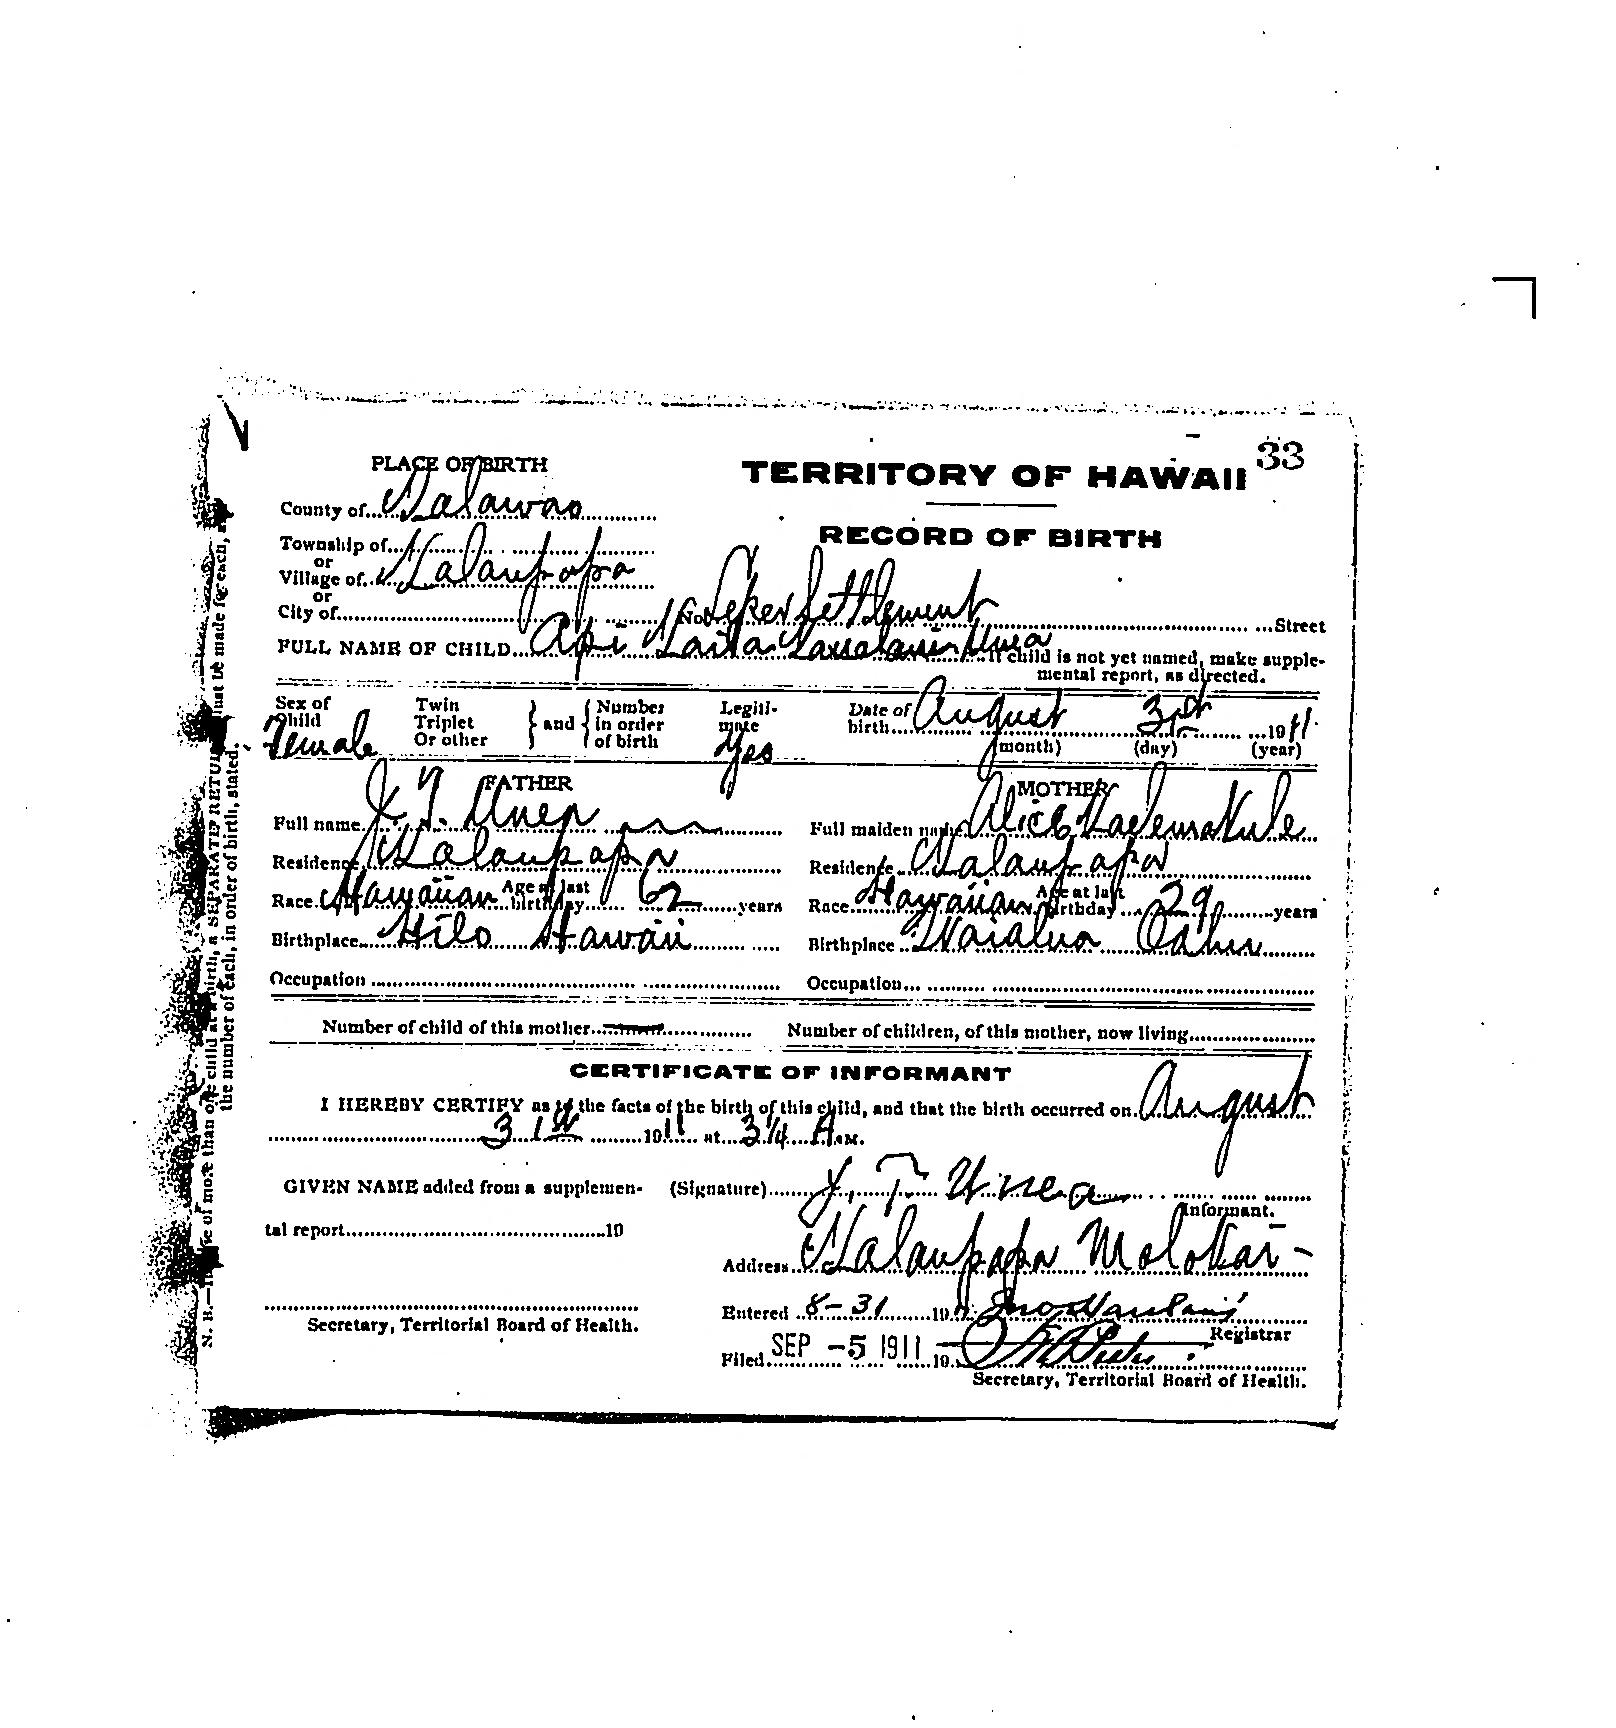 33
PLACE OF BIRTH
TERRITORY OF HAWAII
County of Kalawao
RECORD OF BIRTH
Township of
or
Village of Kalaupapa
or
City of No. Leper Settlement Street
FULL NAME OF CHILD Api Unea If child is not yet named, make supple-
mental report, as directed.
Sex of Child Female
Twin Triplet Or other
and
Number in order of birth
Legiti- mate Yes
Date of birth August 31st 1911
(month) (day) (year)
FATHER
Full name J. T. Unea
Residence Kalaupapa
Race Hawaiian Age at last birthday 62 years
Birthplace Hilo Hawaii
Occupation
MOTHER
Full maiden name Alice
Residence Kalaupapa
Race Hawaiian Age at last birthday 29 years
Birthplace Waialua Oahu
Occupation
Number of child of this mother
Number of children, of this mother, now living
CERTIFICATE OF INFORMANT
I HEREBY CERTIFY as to the facts of the birth of this child, and that the birth occurred on August
31st 1911 at 3¼ A.M.
GIVEN NAME added from a supplemen-
tal report 19
Secretary, Territorial Board of Health.
(Signature) J. T. Unea
Informant.
Address Kalaupapa Molokai
Entered 8-31 1911
Registrar
Filed SEP -5 1911 19
Secretary, Territorial Board of Health.
N. B.— of more than one child at a birth, a SEPARATE RETURN must be made for each, and
the number of each, in order of birth, stated.